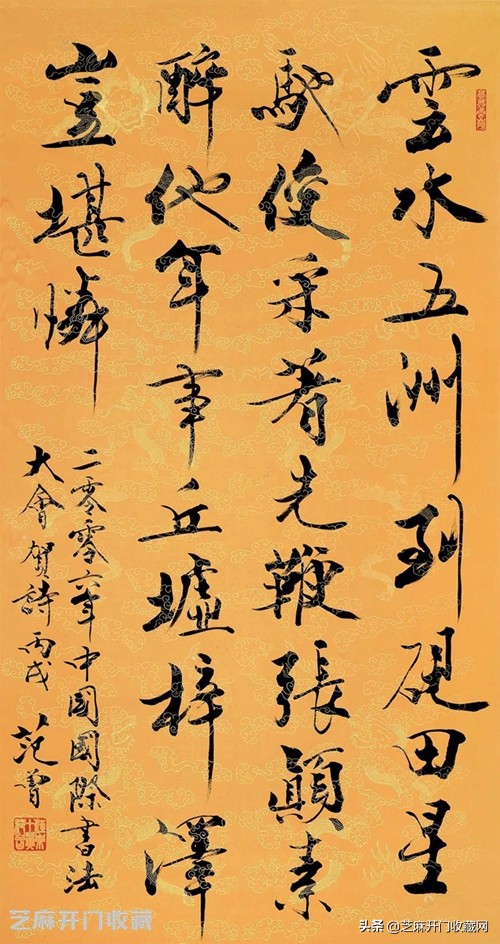 雲水五洲到硯田星
馳俊采著先鞭張顛素
醉他年事丘墟梓澤
豈堪憐
二零零六年中國國際書法
大會賀詩丙戌 范曾
芝麻开门收藏
头条 @芝麻开门收藏网